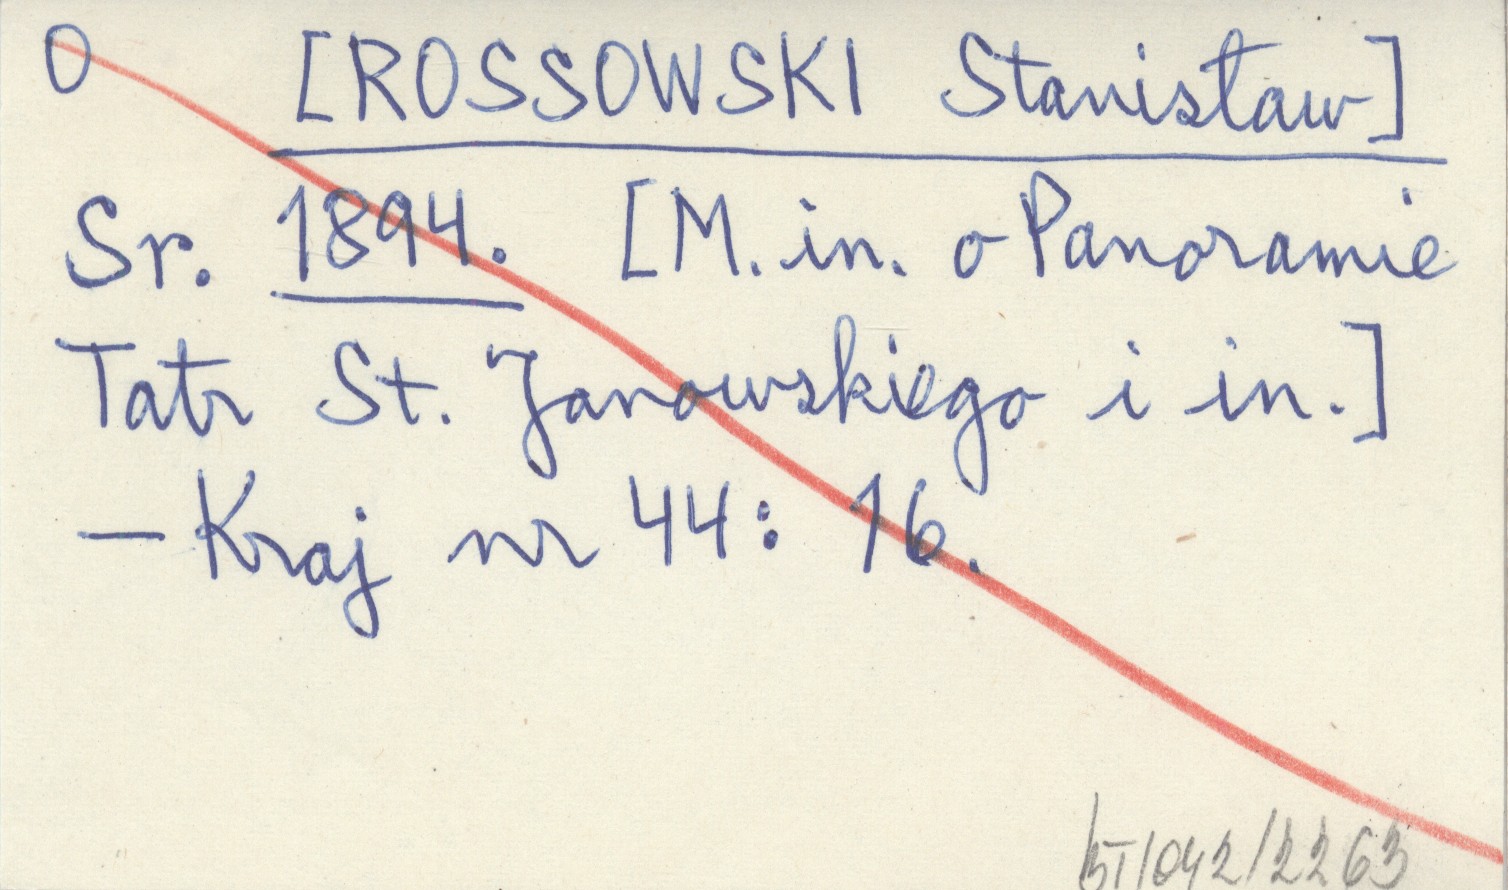 O [ROSSOWSKI Stanisław]
Sr. 1894. [M. in. o Panoramie
Tatr St. Janowskiego i in.]
— Kraj nr 44: 16.
/2263